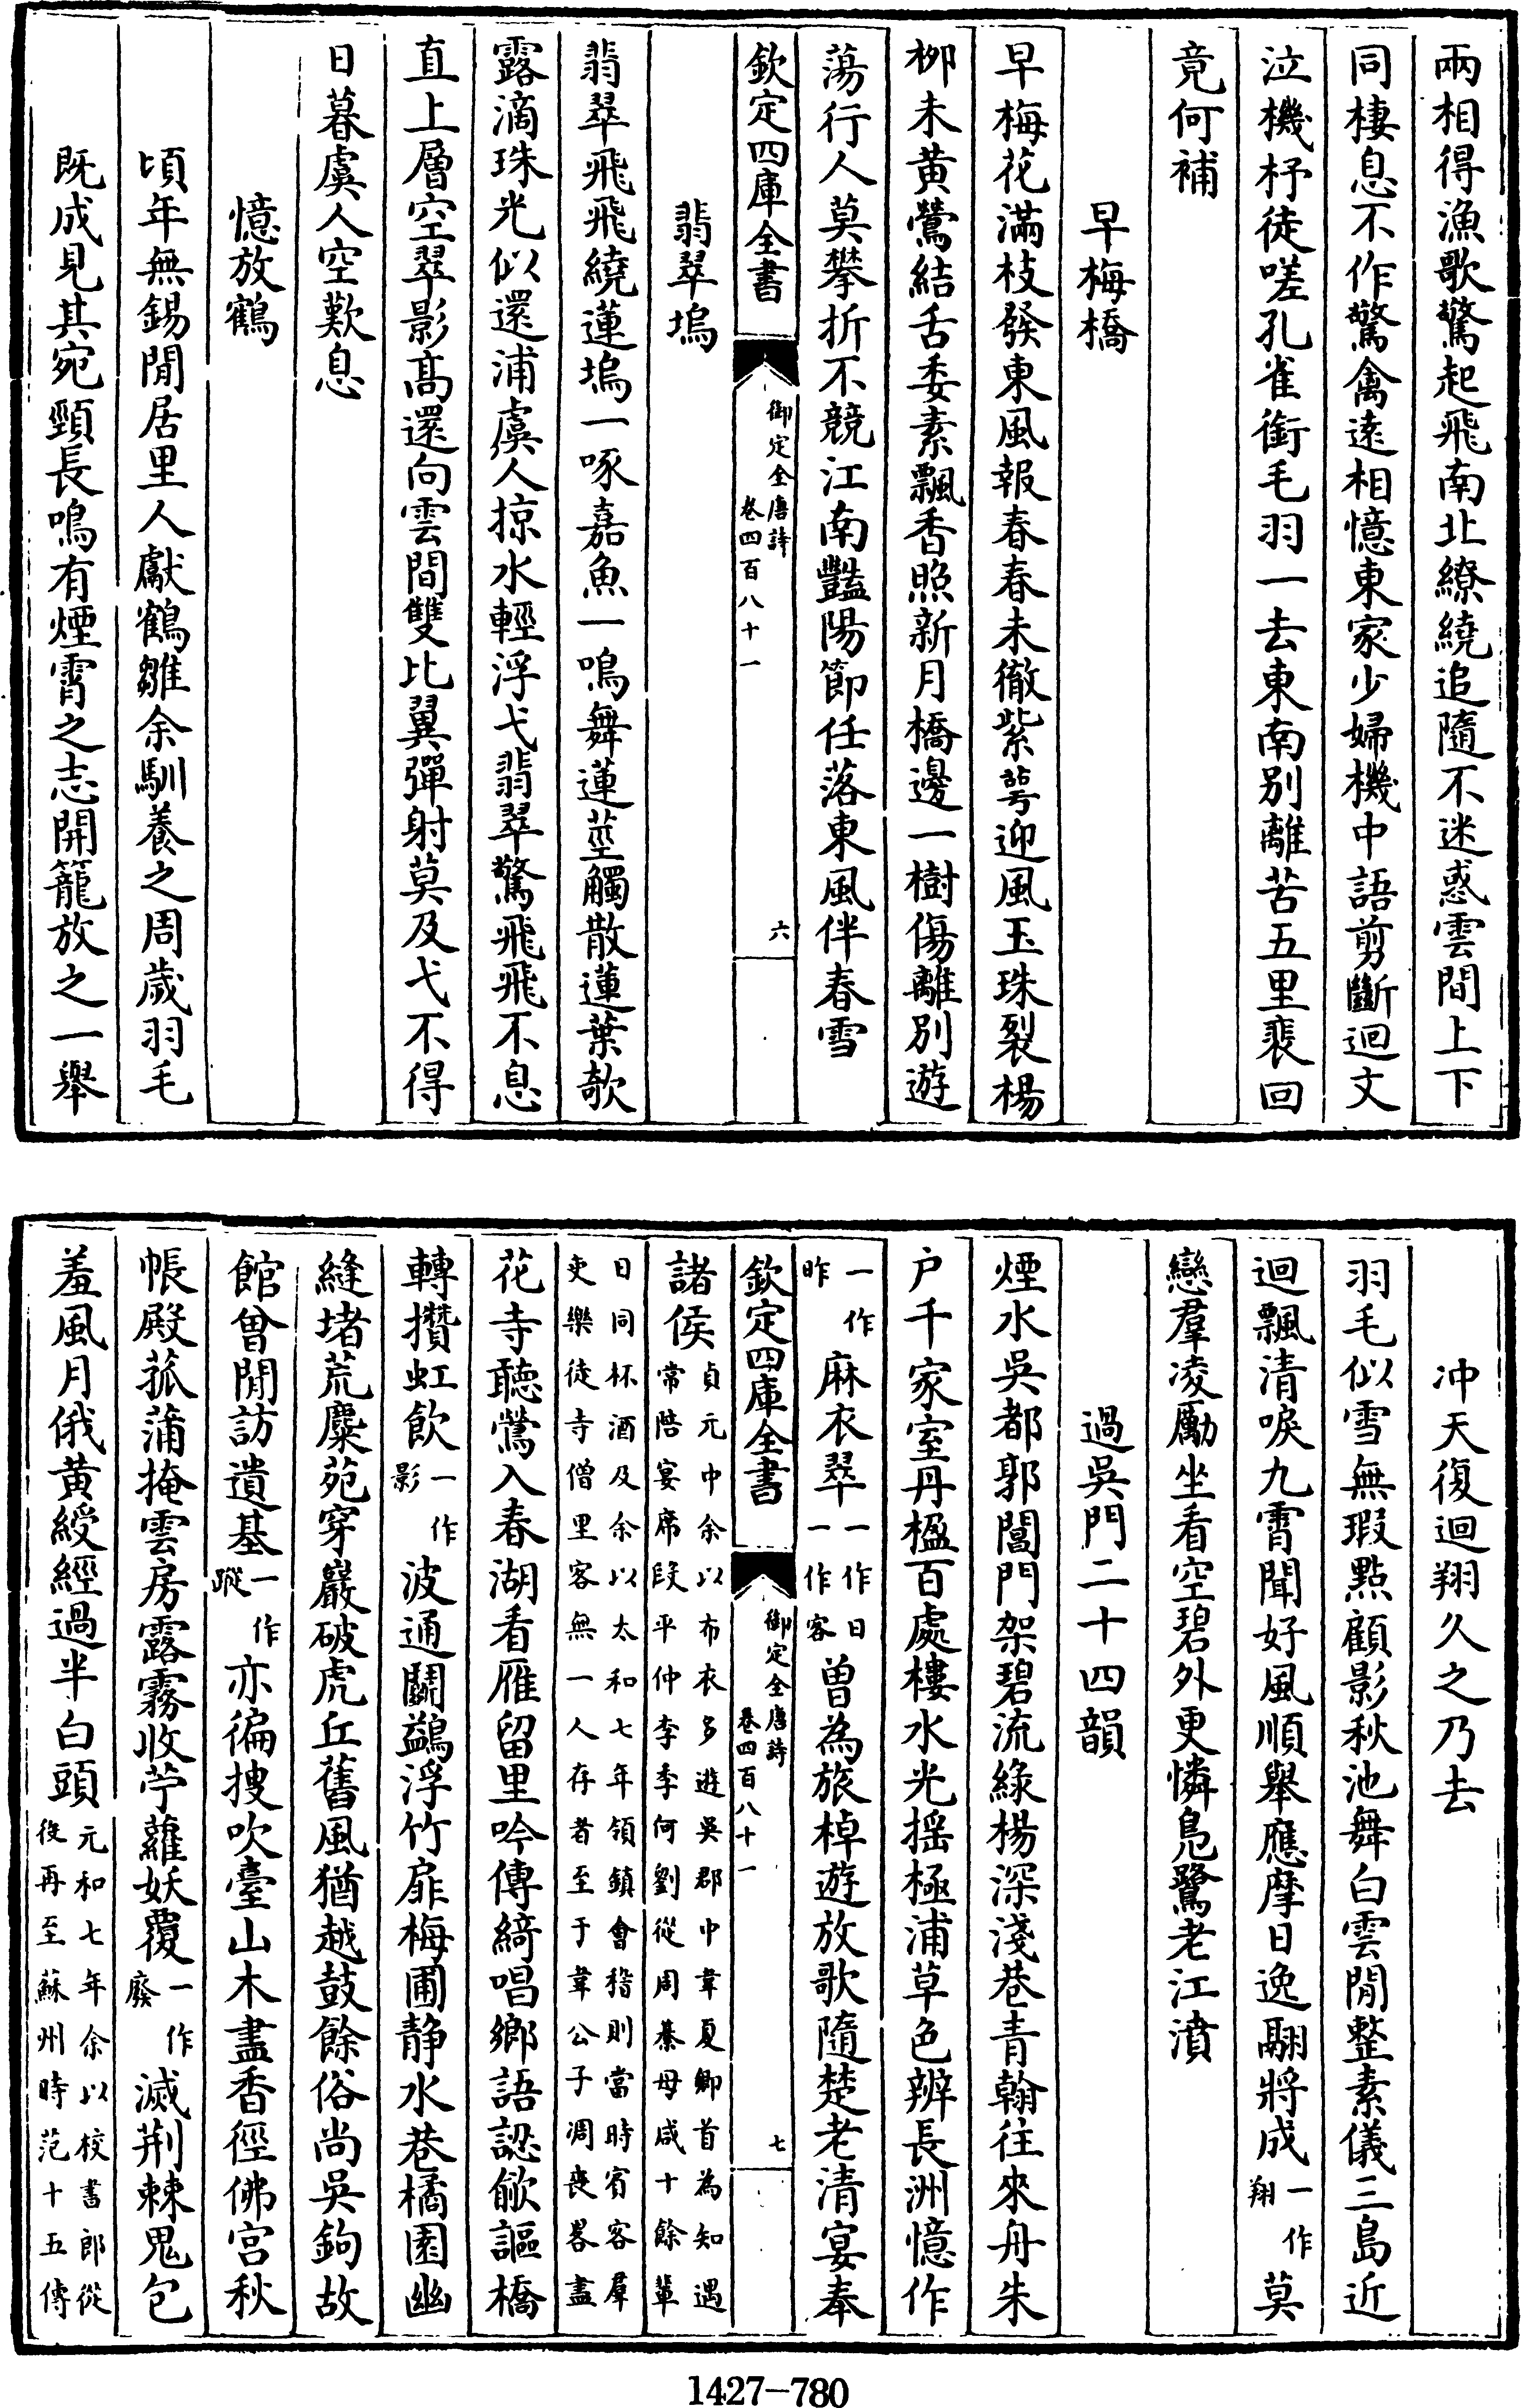 兩相得漁歌驚起飛南北繚繞追隨不迷惑雲間上下
同棲息不作驚禽遠相憶東家少婦機中語剪斷迴文
泣機杼徒嗟孔雀銜毛羽一去東南别離苦五里裴回
竟何補
早梅橋
早梅花滿枝發東風報春春未徹紫萼迎風玉珠裂楊
栁未黄鶯結舌委素飄香照新月橋邊一樹傷離别遊
蕩行人莫攀折不競江南豔陽節任落東風伴春雪
欽定四庫全書
御定全唐詩
卷四百八十一
六
翡翠塢
翡翠飛飛繞蓮塢一啄嘉魚一鳴舞蓮莖觸散蓮葉欹
露滴珠光似還浦虞人掠水輕浮弋翡翠驚飛飛不息
直上層空翠影髙還向雲間雙比翼彈射莫及弋不得
日暮虞人空歎息
憶放鶴
頃年無錫閒居里人獻鶴雛余馴養之周歲羽毛
既成見其宛頸長鳴有煙霄之志開籠放之一舉
冲天復迴翔久之乃去
羽毛似雪無瑕點顧影秋池舞白雲閒整素儀三島近
迴飄清唳九霄聞好風順舉應摩日逸翮將成一作翔莫
戀羣凌勵坐看空碧外更憐鳬鷺老江濆
過吳門二十四韻
煙水吳都郭閶門架碧流綠楊深淺巷青翰往來舟朱
户千家室丹楹百處樓水光摇極浦草色辨長洲憶作
一作昨麻衣翠一作日一作客曽為旅棹遊放歌隨楚老清宴奉
欽定四庫全書
御定全唐詩
卷四百八十一
七
諸侯貞元中余以布衣多遊吳郡中韋夏卿首為知遇
常陪宴席段平仲李季何劉從周綦母咸十餘輩
日同杯酒及余以太和七年領鎮會稽則當時賓客羣
吏樂徒寺僧里客無一人存者至于韋公子凋喪畧盡
花寺聽鶯入春湖看雁留里吟傳綺唱鄉語認歈謳橋
轉攢虹飲一作影波通鬭鷁浮竹扉梅圃静水巷橘園幽
縫堵荒麋苑穿巖破虎丘舊風猶越鼓餘俗尚吳鉤故
館曾閒訪遺基一作蹤亦徧搜吹臺山木盡香徑佛宫秋
帳殿菰蒲掩雲房露霧收苧蘿妖覆一作廢滅荆棘鬼包
羞風月俄黄綬經過半白頭元和七年余以校書郎從
役再至蘇州時范十五傳
1427-780